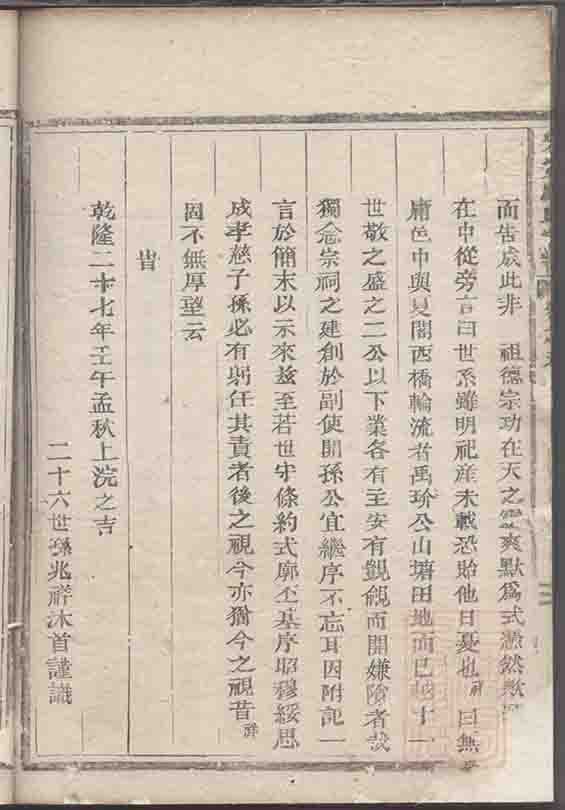 而告成此非 祖德宗功在天之靈爽默爲式憑然歟
在中從旁言曰世系雖明祀産未載恐貽他日憂也祥曰無
庸邑中與夏閣西橋輪流者禹玠公山塘田地而已越十一
世敬之盛之二公以下業各有主安有覬覦而開嫌隙者哉
獨念宗祠之建創於副使開孫公宜繼序不忘耳因附記一
言於簡末以示來茲至若世守條約式廓丕基序昭穆綏思
成孝慈子孫必有躬任其責者後之視今亦猶今之視昔祥
固不無厚望云
旹
乾隆二十七年壬午孟秋上浣之吉
二十六世孫兆祥沐首謹識